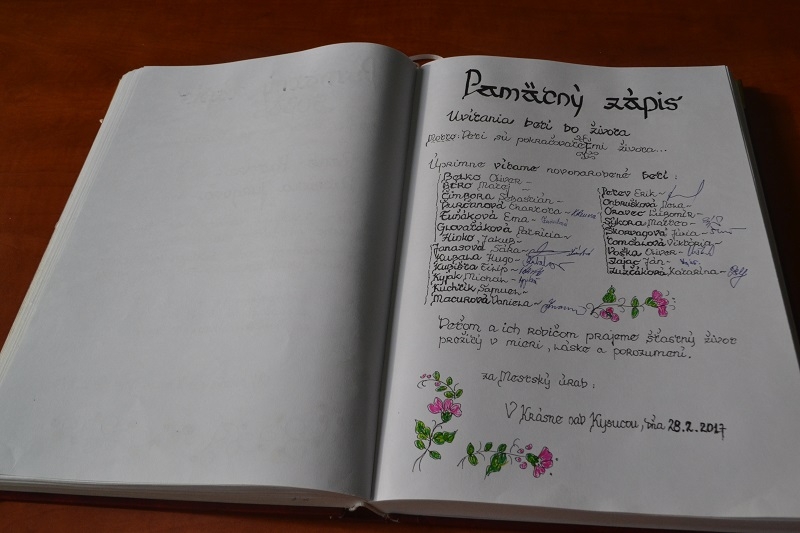 Pamätný zápis
Uvítania detí do života
Motto: Deti sú pokračovateľmi života...
Úprimne vítame novonarodené deti:
Bojko Oliver -
Bero Matej -
Čimbora Sebastián -
Ďurčanová Charlota -
Ema -
Patrícia -
Hlinka Jakub -
Janasová Sára -
Kuzala Hugo -
Filip -
Kyjak Michal -
Samuel -
Macurová Daniela -
Peter Erik -
Ondrušková Nela -
Oravec Ľubomír -
Sýkora Matteo -
Škorvagová Júlia -
Tomčalová Viktória -
Voška Oliver -
Zajac Ján -
Zuzčáková Katarína -
Deťom a ich rodičom prajeme šťastný život
prežitý v mieri, láske a porozumení.
za Mestský úrad:
V Krásne nad Kysucou, dňa 28.2.2017